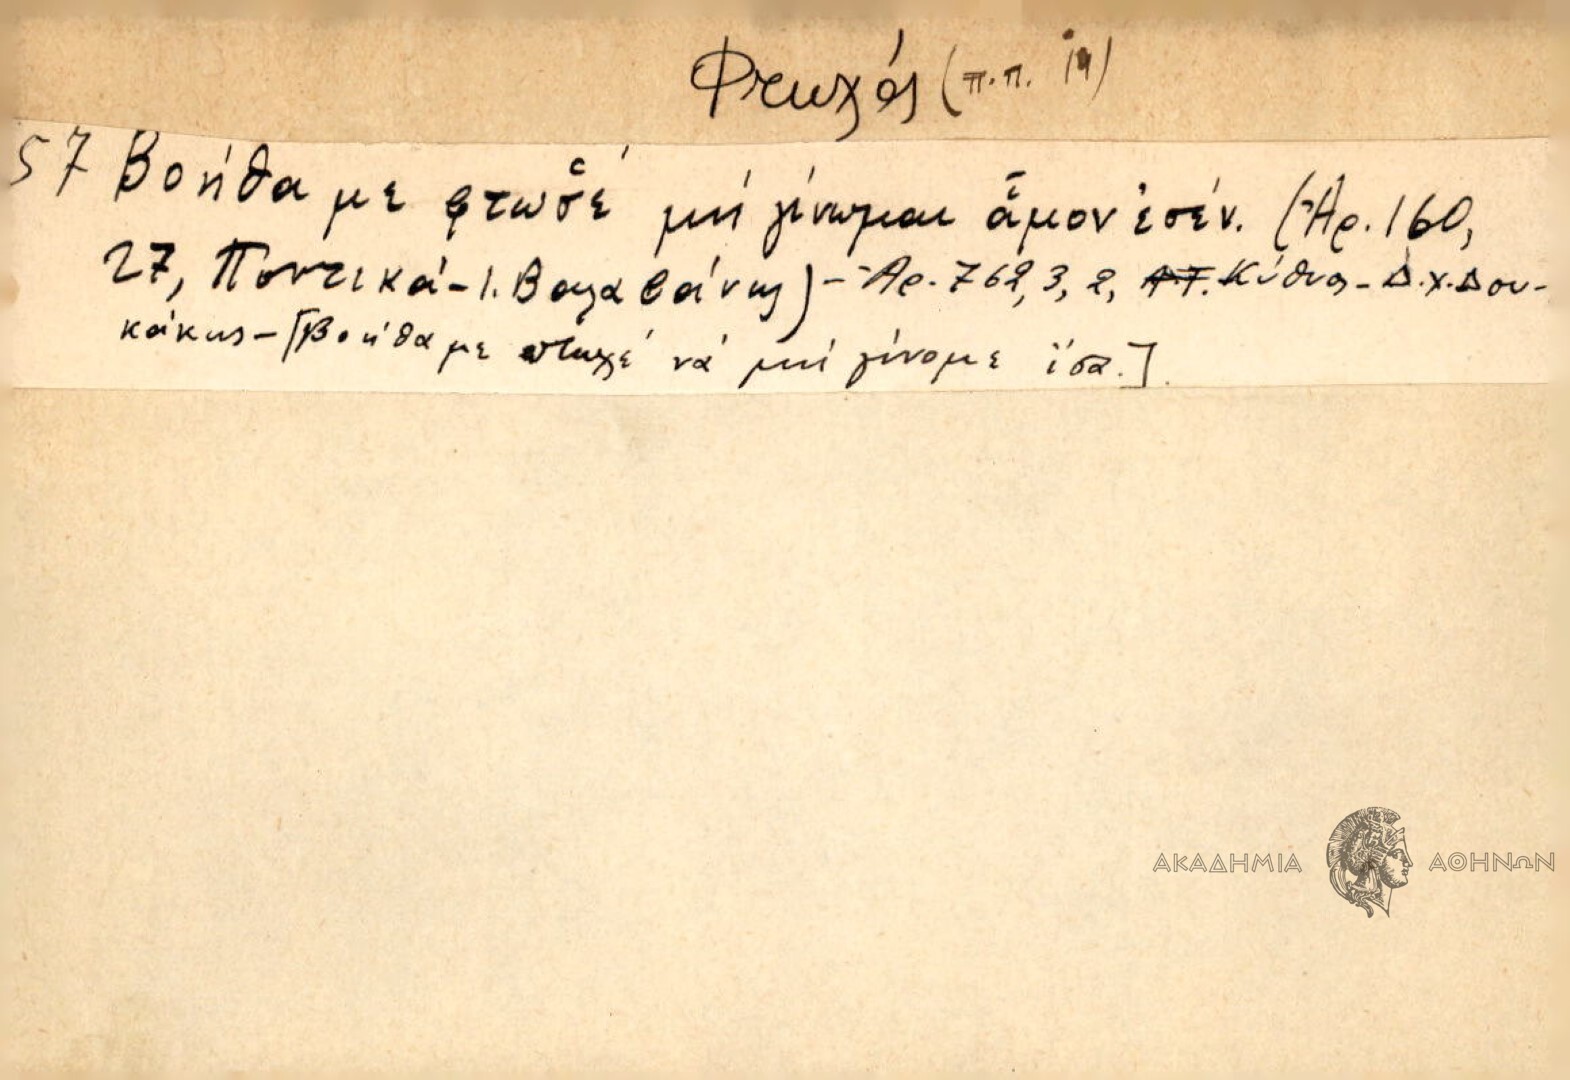 Φτωχός (π.π. 19)
57 Βοήθα με φτωσ̌έ μή γίνωμαι ἄμον ἐσέν. (Ἀρ. 160,
27, Ποντικά - Ι. Βαλαβάνης) - Ἀρ. 762, 3, 2, Κύθνος - Δ.Χ. Δου-
κάκης - [Βοήθα με φτωχέ νά μή γίνομε ἴσα.]
ΑΚΑΔΗΜΙΑ ΑΘΗΝΩΝ